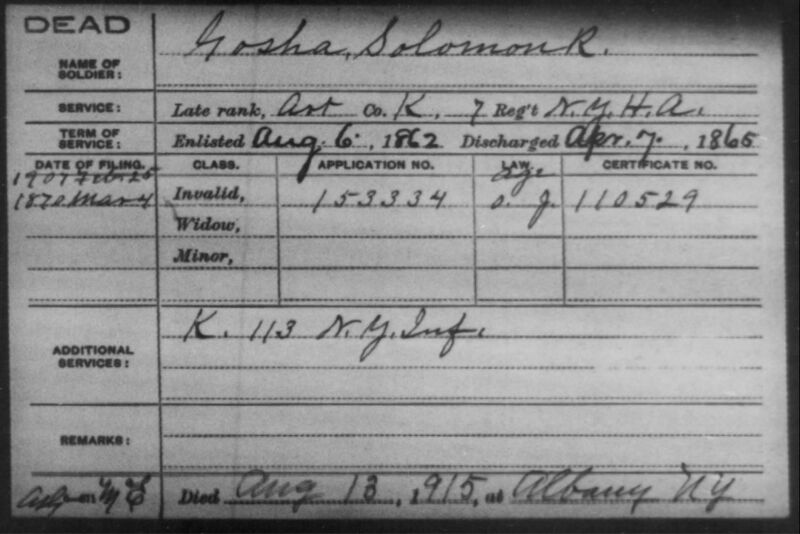 DEAD
NAME OF SOLDIER: Gosha, Solomon R.
SERVICE: Late rank, Art Co. K, 7 Reg't N.Y.H.A.
TERM OF SERVICE: Enlisted Aug. 6, 1862 Discharged Apr. 7, 1865
DATE OF FILING. CLASS. APPLICATION NO. LAW. CERTIFICATE NO.
1907 Feb. 25
1870 Mar 4 Invalid, 153334 110529
Widow,
Minor,
ADDITIONAL SERVICES: K. 113 N.Y. Inf.
REMARKS:
Died Aug 13, 1915, at Albany NY